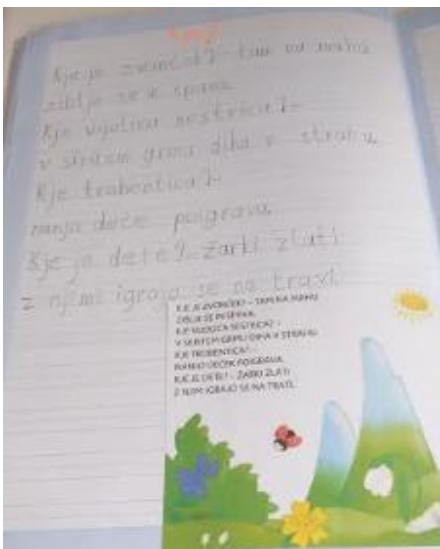 Kje je zvonček? - tam na mahu
ziblje se in spava.
Kje vijolica sestrica? -
v skritem grmu diha v strahu.
Kje trobentica? -
nanjo deček poigrava.
Kje je dete? - Žarki zlati
z njimi igrajo se na trati.
KJE JE ZVONČEK? - TAM NA MAHU
ZIBLJE SE IN SPAVA.
KJE VIJOLICA SESTRICA? -
V SKRITEM GRMU DIHA V STRAHU.
KJE TROBENTICA? -
NANJO DEČEK POIGRAVA.
KJE JE DETE? - ŽARKI ZLATI
Z NJIM IGRAJO SE NA TRATI.